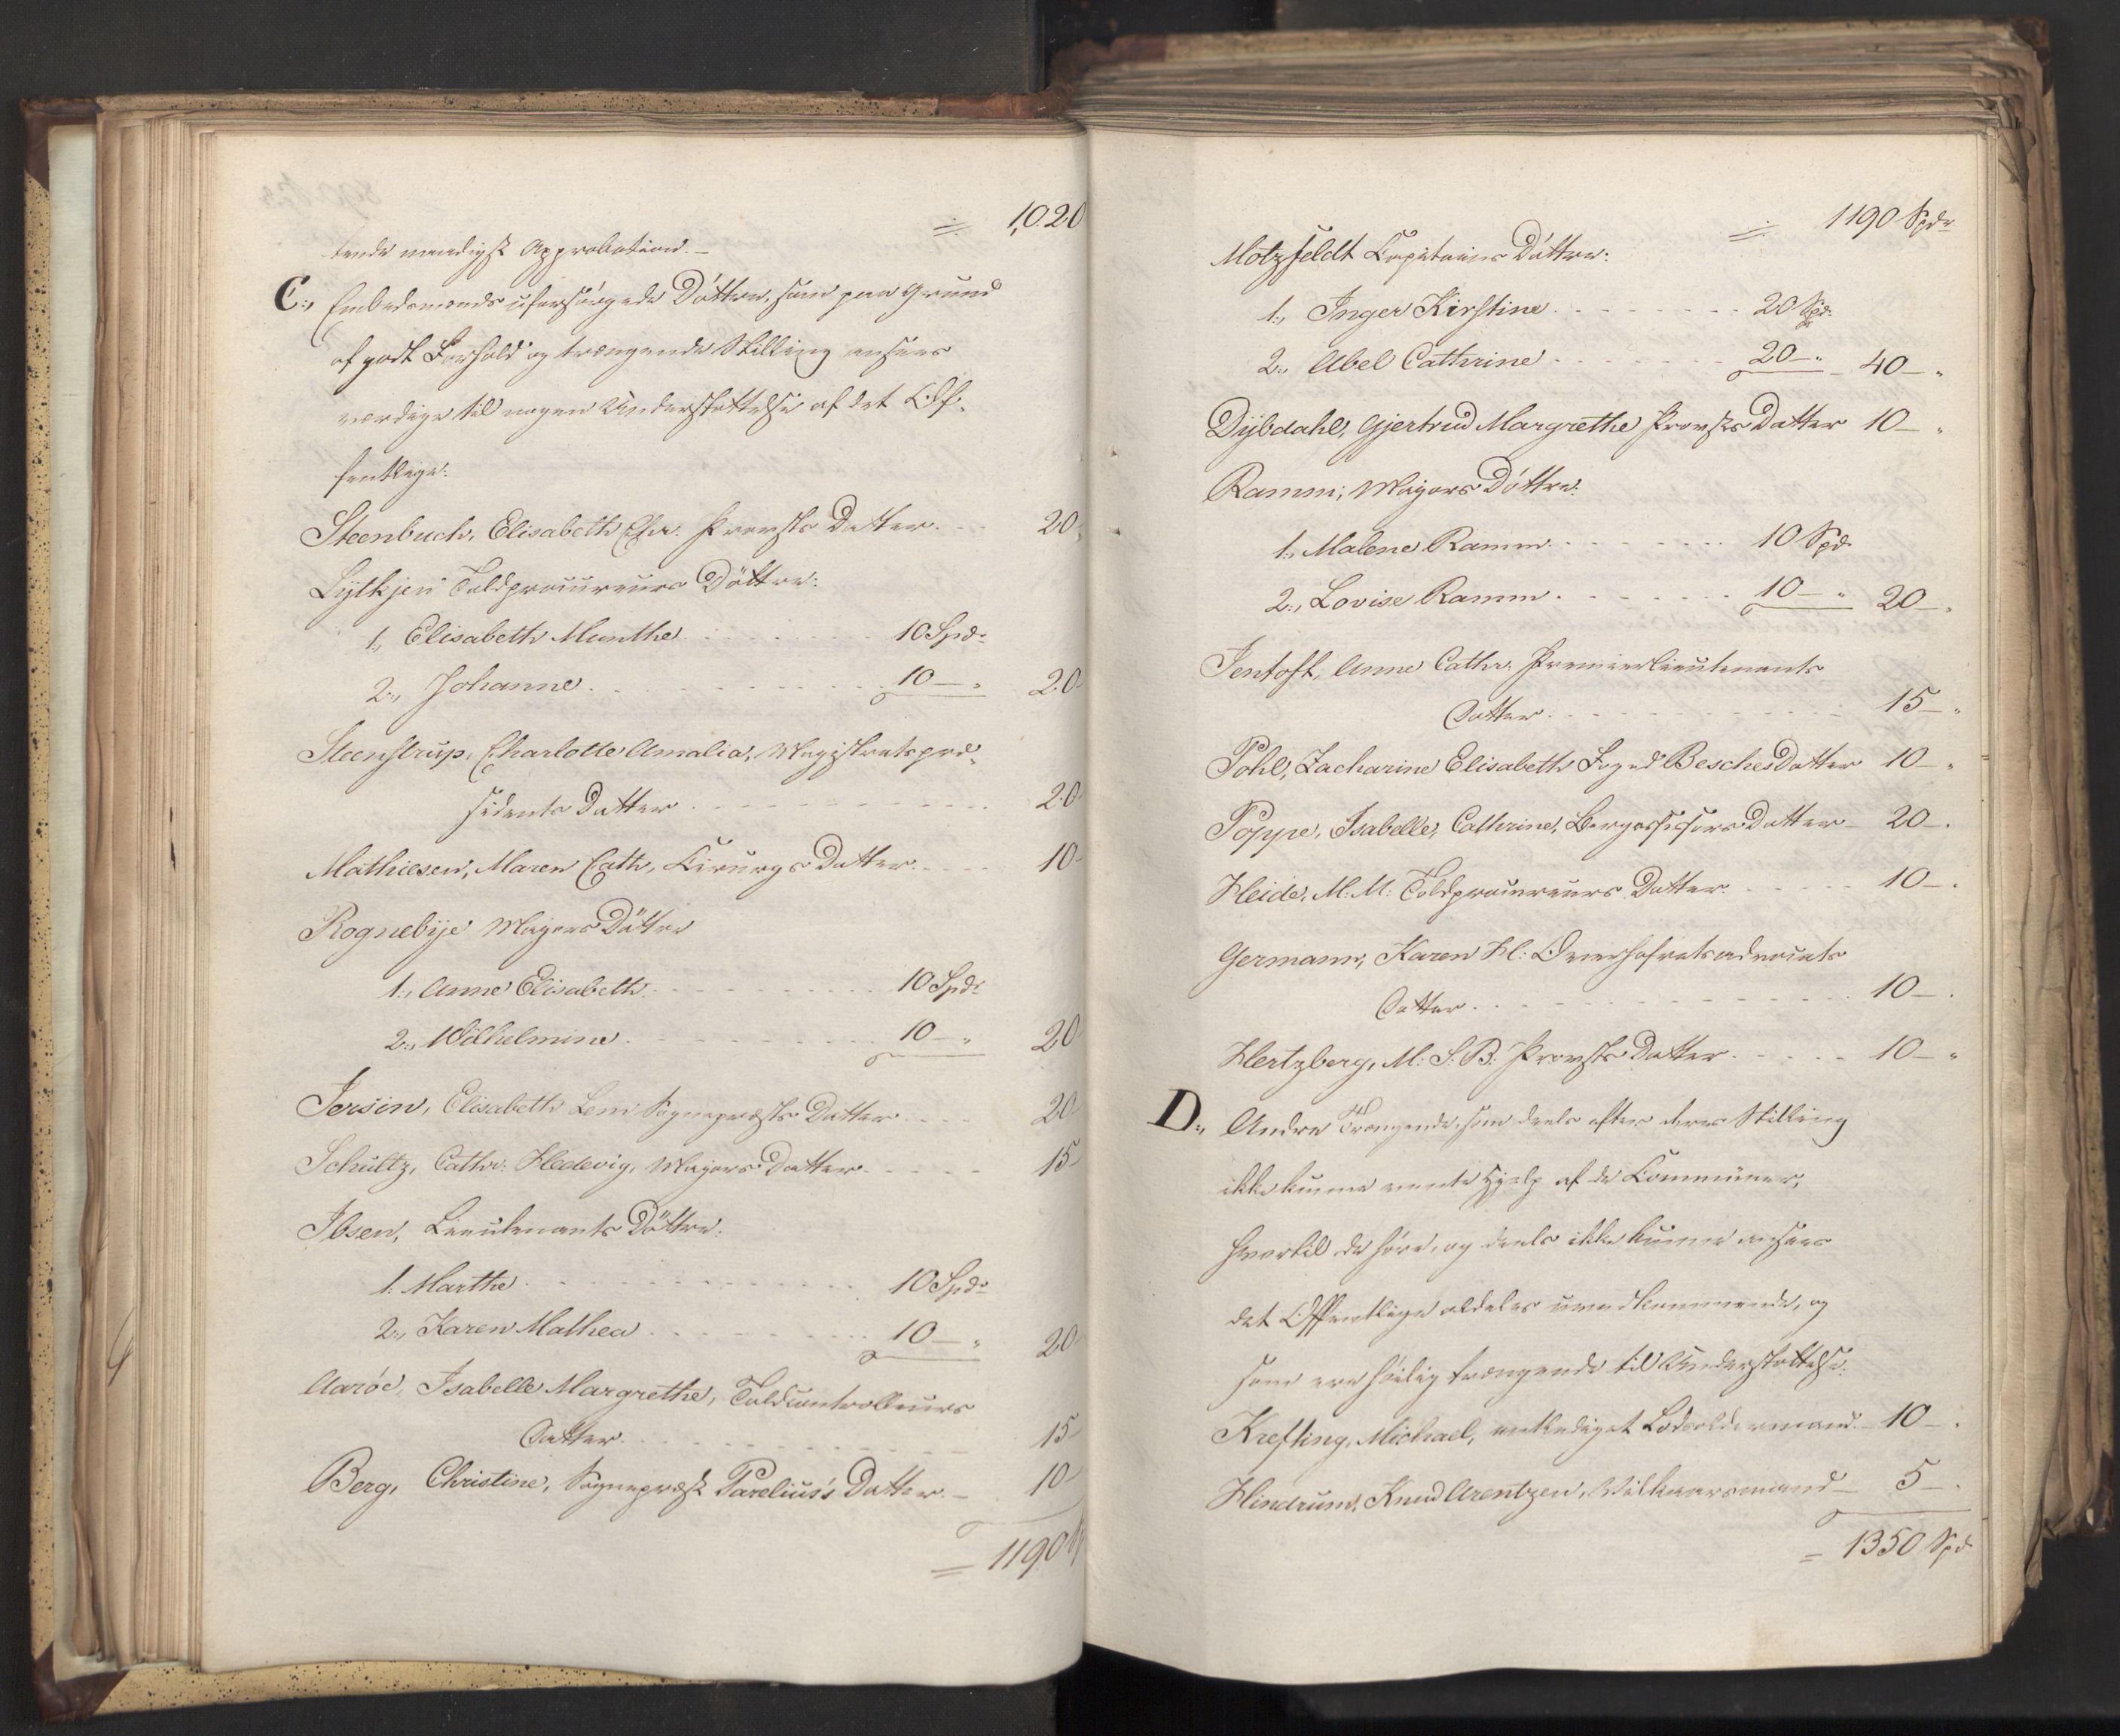 = 1,020
tende naadigst Approbation. –
C., Embedsmænds uforsørgede Döttre, som paa Grund
af godt Forhold og trængende Stilling ansees
værdige til nogen Understøttelse af det Of-
fentlige:
Steenbuch, Elisabeth Chr. Provsts Datter. 20
Lytkjen Toldprocureurs Döttre:
1., Elisabeth Munthe 10 Spdr
2., Johanne 10 – „ 20
Steenstrup, Charlotte Amalia, Magistratspræ-
sidents Datter 20
Mathiesen, Maren Cath, Kirurgs Datter 10
Rognebye Majors Döttre
1., Anne Elisabeth 10 Spdr
2., Wilhelmine 10 – „ 20
Jersin, Elisabeth Lem Sognepræsts Datter 20
Schultz, Cathr. Hedevig, Majors Datter 15
Ibsen, Lieutenants Döttre:
1. Marthe 10 Spdr
2., Karen Mathea 10 – „ 20
Aaröe, Isabelle Margrethe, Toldcontrolleurs
Datter 15
Berg, Christine, Sognepræst Parelius's Datter – 10
= 1190
= 1190 Spdr
Motzfeldt Capitains Döttre:
1., Inger Kirstine 20 Spd.
2., Abel Cathrine 20 – „ 40 – „
Dybdahl, Gjertrud Margrethe Provsts Datter 10 – „
Ramm, Majors Döttre:
1., Malene Ramm 10 Spd
2., Lovise Ramm 10 – „ 20 – „
Jentoft, Anne Cathr. Premierlieutenants
Datter 15 – „
Pohl, Zacharine Elisabeth Foged Besches Datter 10 – „
Poppe, Isabelle, Cathrine, Bergassessors Datter – 20 – „
Heide, M. M: Toldprocureurs Datter 10 – „
Germann, Karen H: Overhofretsadvocats
Datter 10 – „
Hertzberg, M: S: B: Provsts Datter 10 – „
D., Andre Trængende, som deels efter deres Stilling
ikke kunne vente Hjelp af de Communer,
hvortil de høre, og deels ikke kunne ansees
det Offentlige aldeles uvedkommende, og
som ere høilig trængende til Understøttelse:
Krefting, Michael, entlediget Lodsoldermand 10 – „
Hindrum, Knud Arentzen, Vilkaarsmand – 5 – „
= 1350 Spd